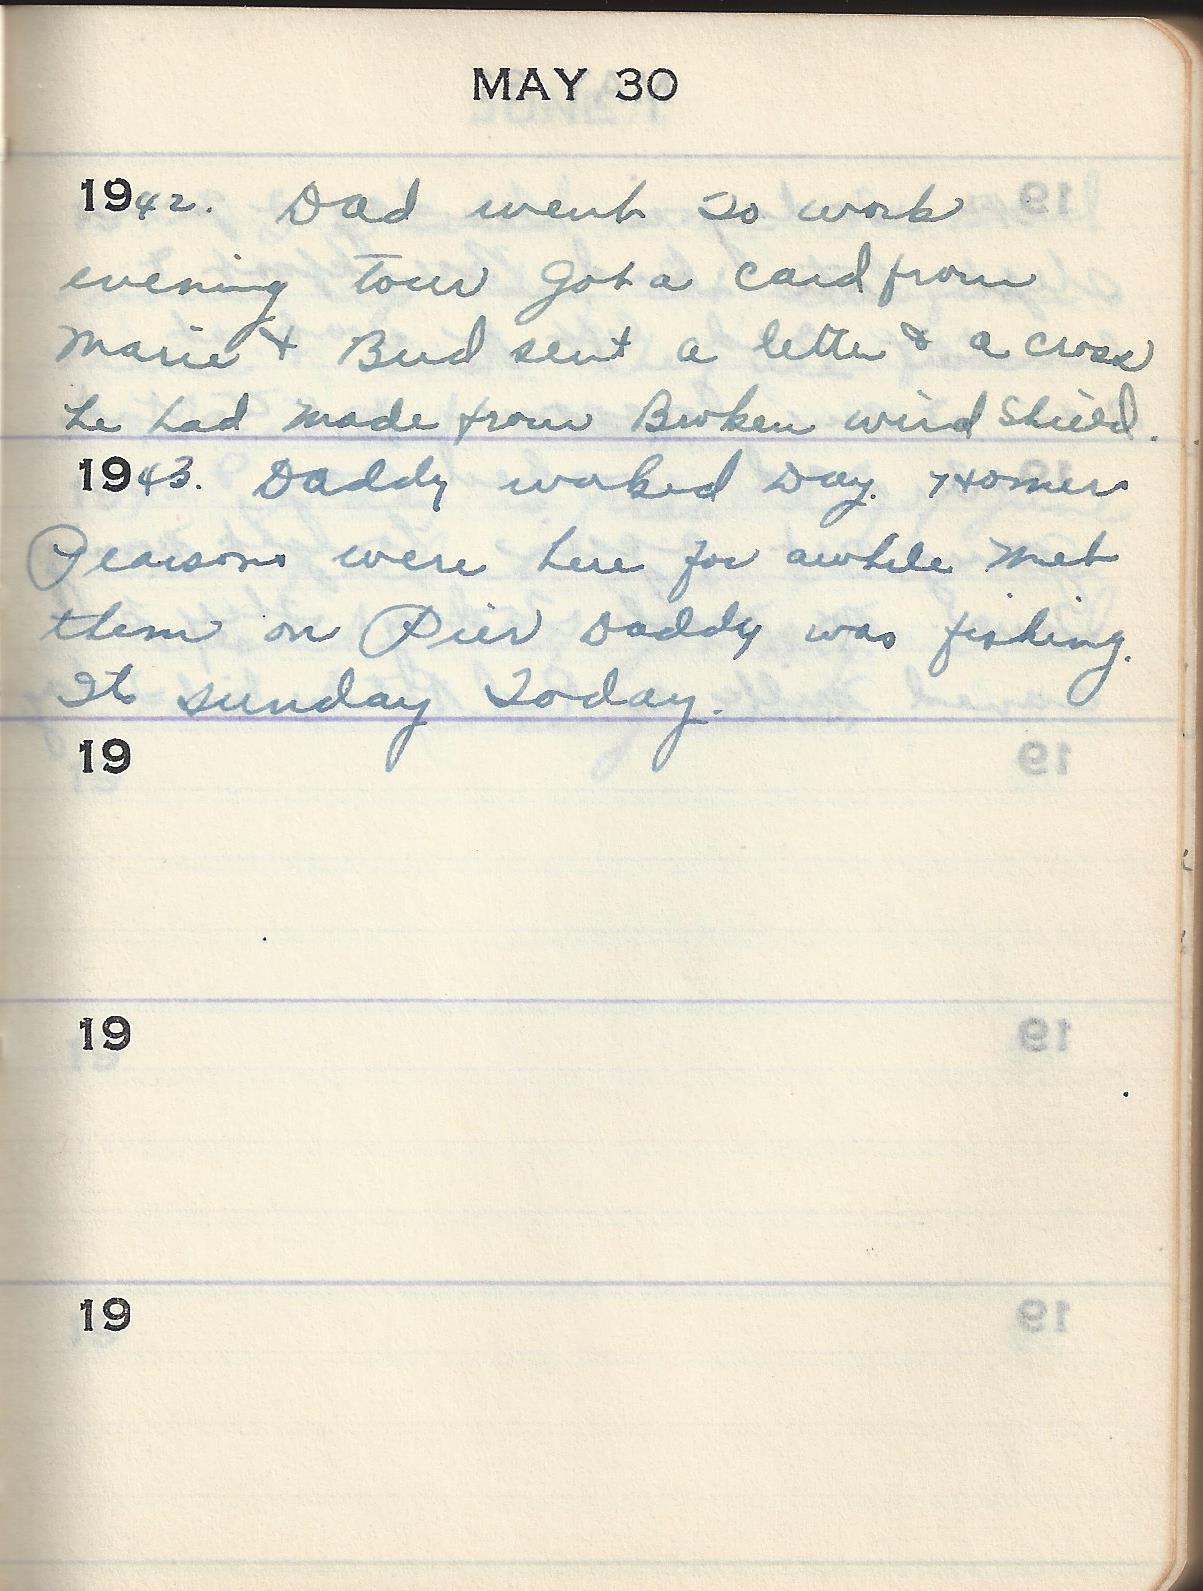 MAY 30
1942. Dad went to work
evening tour Got a card from
Marie & Bud sent a letter & a cross
he had made from Broken wind shield.
1943. Daddy worked Day. Homer
Pearsons were here for awhile met
them on Pier Daddy was fishing.
Its sunday Today.
19
19
19